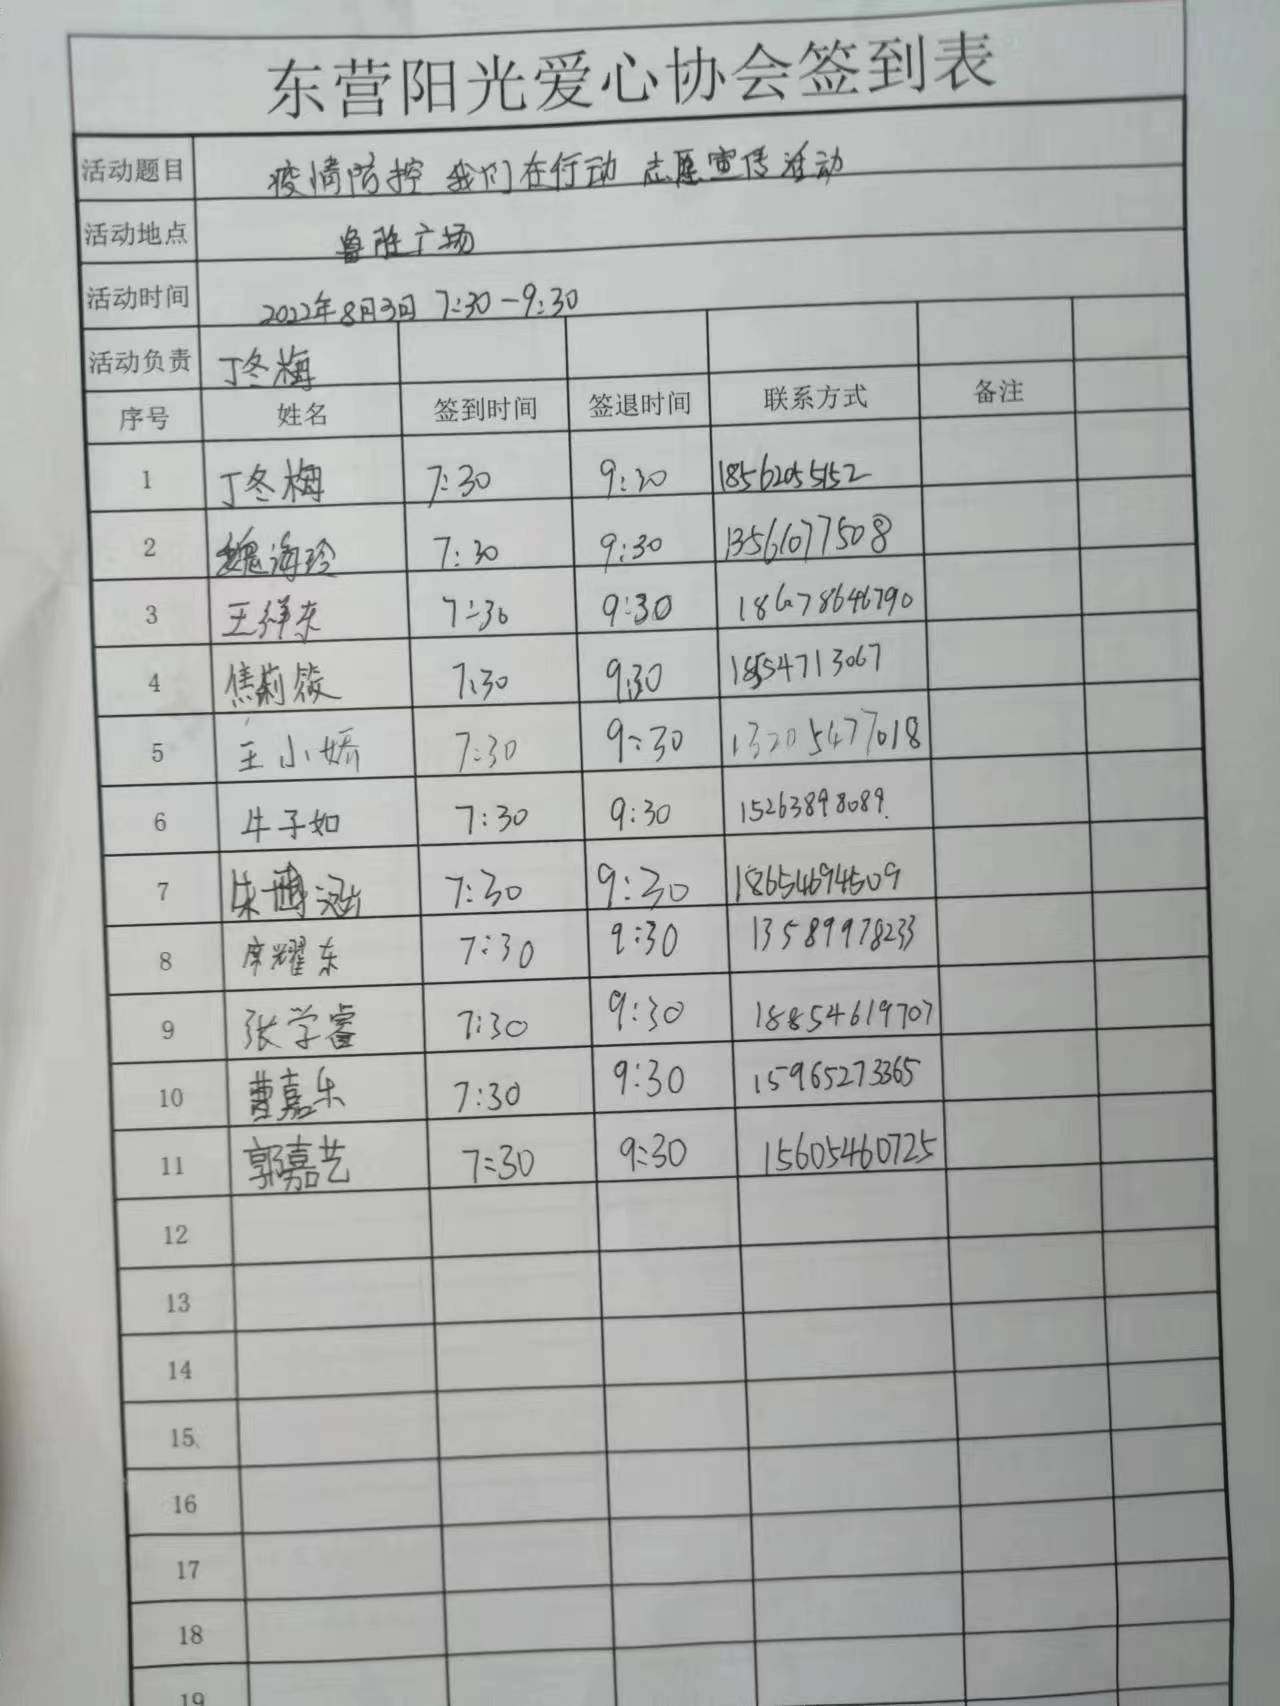 东营阳光爱心协会签到表
活动题目 疫情防控 我们在行动 志愿宣传活动
活动地点 鲁胜广场
活动时间 2022年8月3日 7:30-9:30
活动负责 丁冬梅
序号 姓名 签到时间 签退时间 联系方式 备注
1 丁冬梅 7:30 9:30 18562055152
2 魏海珍 7:30 9:30 13561077508
3 王祥东 7:30 9:30 18678646790
4 焦莉筱 7:30 9:30 18554713067
5 王小娇 7:30 9:30 13205477018
6 牛子如 7:30 9:30 15263898089
7 朱博涵 7:30 9:30 18654694509
8 席耀东 7:30 9:30 13589978233
9 张学睿 7:30 9:30 18854619707
10 曹嘉乐 7:30 9:30 15965273365
11 郭嘉艺 7:30 9:30 15605460725
12
13
14
15
16
17
18
19